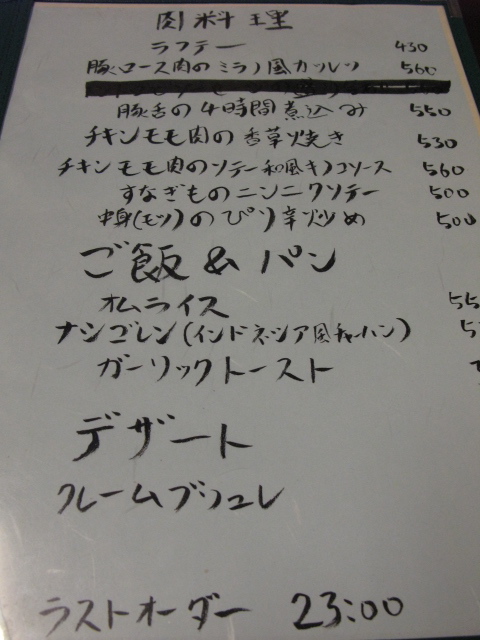 肉料理
ラフテー 430
豚ロース肉のミラノ風カツレツ 560
豚舌の4時間煮込み 550
チキンモモ肉の香草焼き 530
チキンモモ肉のソテー和風キノコソース 560
すなぎものニンニクソテー 500
中身(モツ)のぴり辛炒め 500
ご飯 & パン
オムライス 55
ナシゴレン(インドネシア風チャーハン) 5
ガーリックトースト
デザート
クレームブシュレ
ラストオーダー 23:00